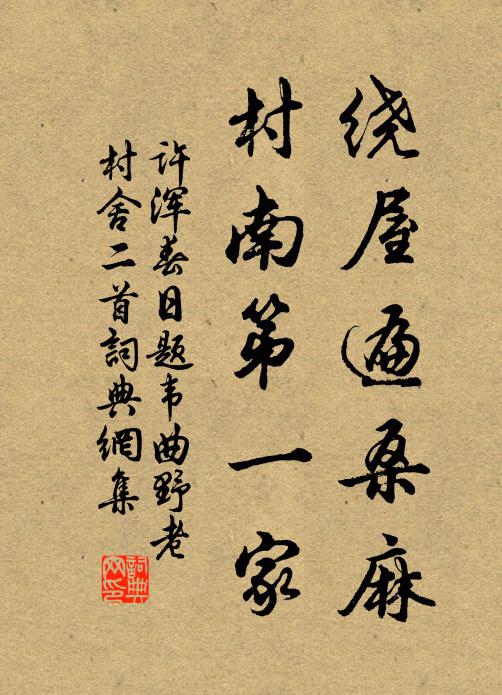 绕屋遍桑麻
村南第一家
许浑春日题韦曲野老
村舍二首詞典網集
詞典
网印